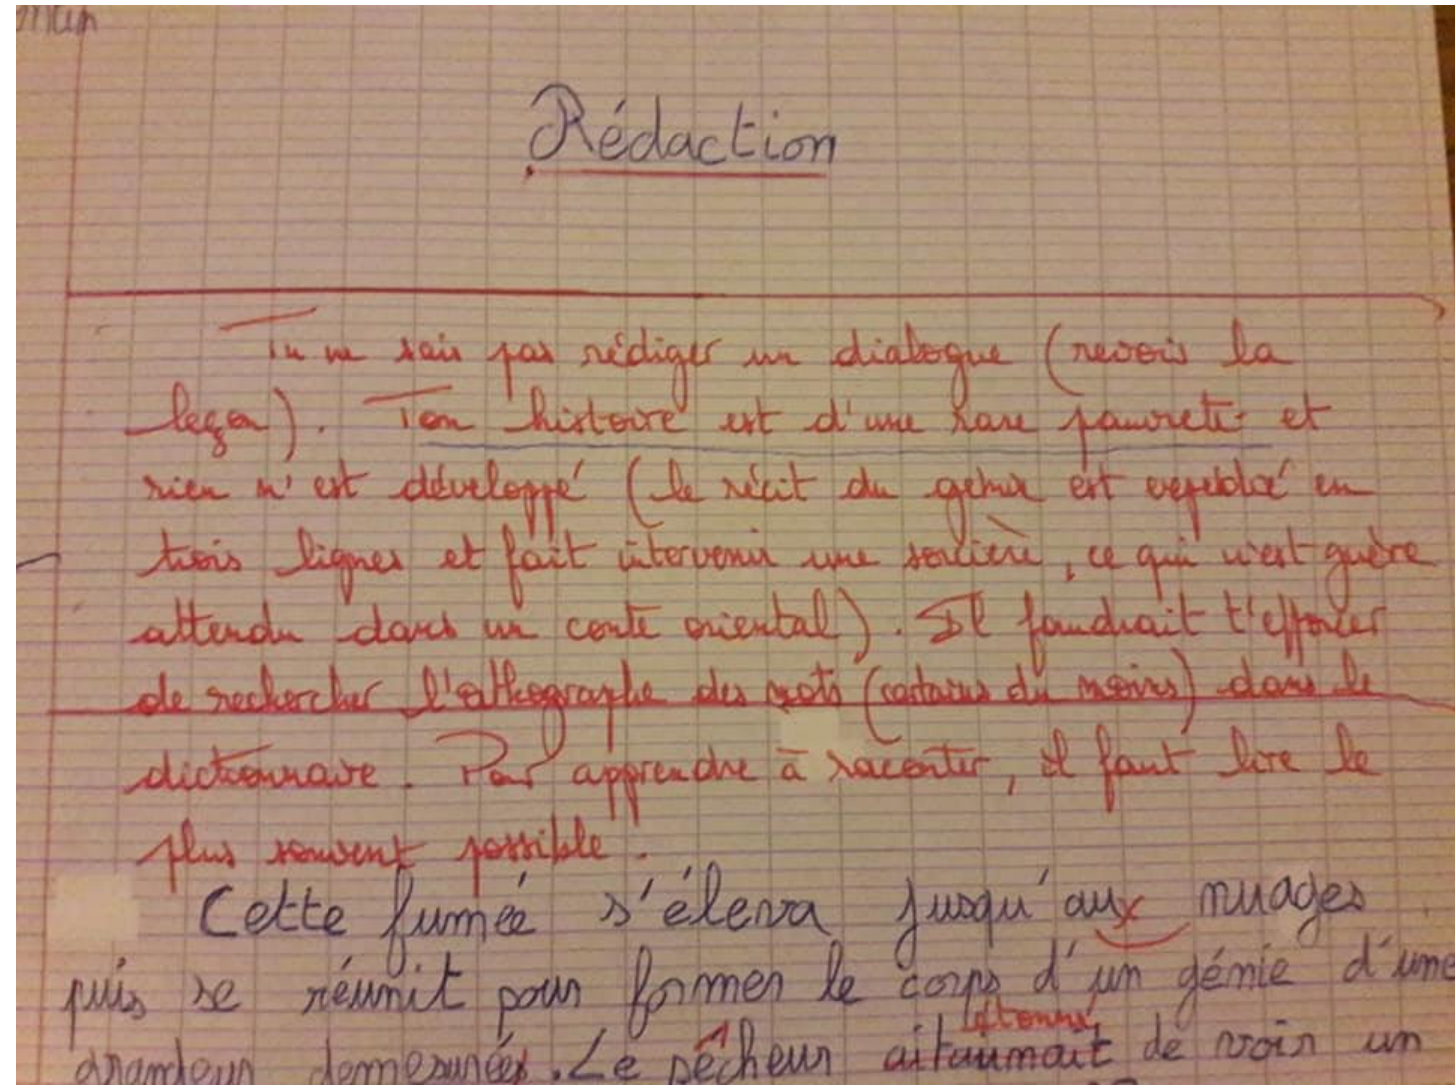 Rédaction
Tu ne sais pas rédiger un dialogue (revois la
leçon). Ton histoire est d'une rare pauvreté et
rien n'est développé (le récit du génie est en
trois lignes et fait intervenir une sorcière, ce qui n'est guère
attendu dans un conte oriental). Il faudrait t'efforcer
de rechercher l'orthographe des mots (certains du moins) dans le
dictionnaire. Pour apprendre à raconter, il faut lire le
plus souvent possible.
Cette fumée s'éleva jusqu'aux nuages
puis se réunit pour former le corps d'un génie d'une
étonné
grandeur demesurée. Le pêcheur aitaumait de voir un